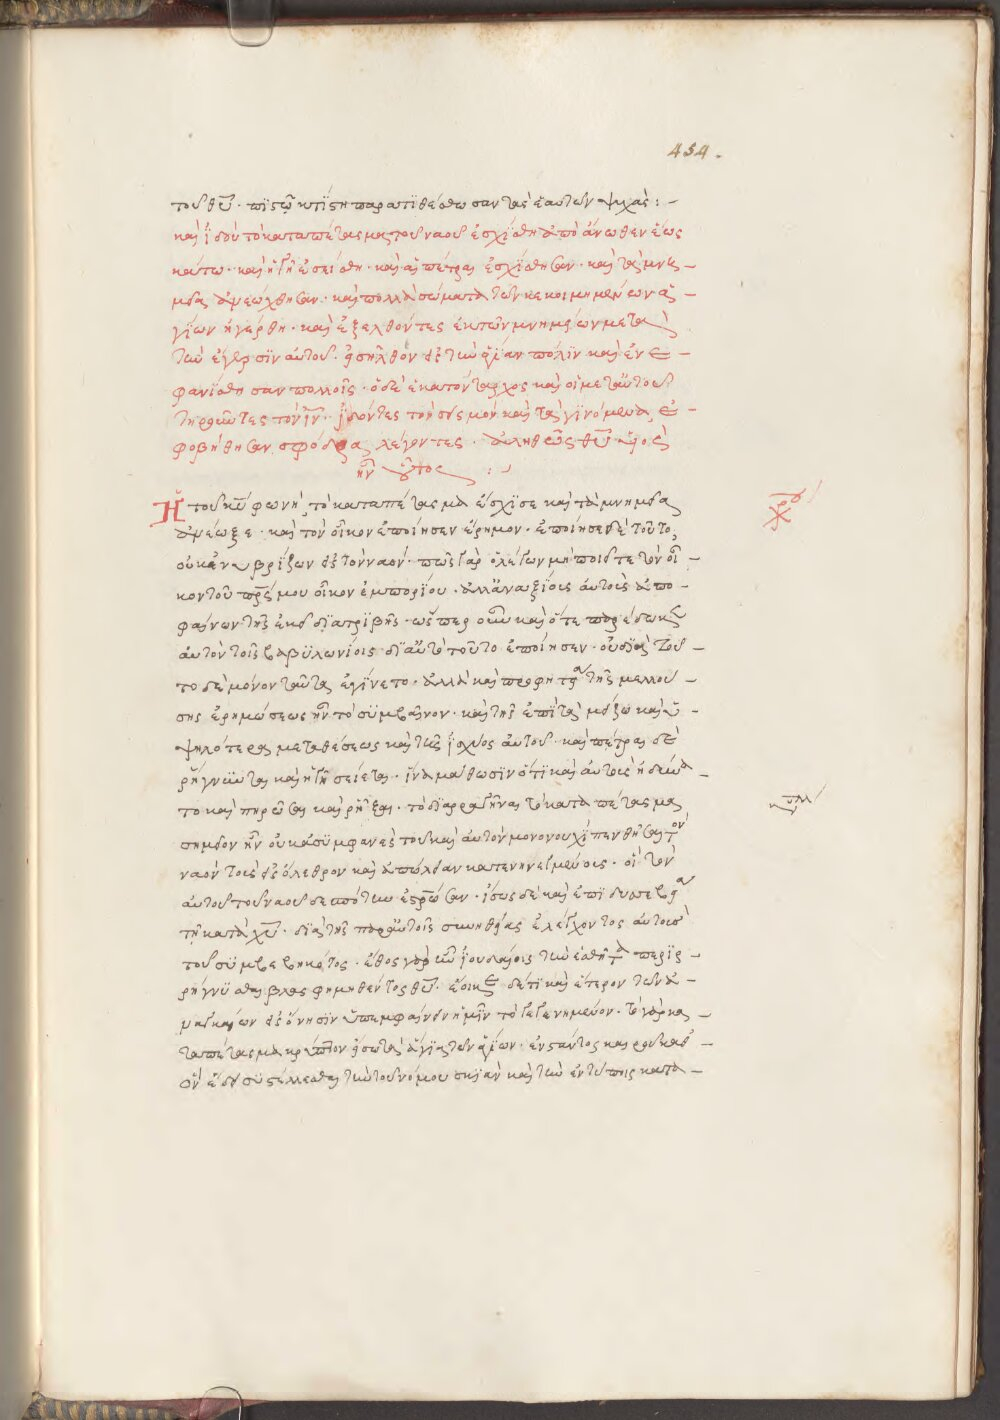 454.
τοῦ θῦ. πιστῷ κτίστη παρατιθέσθωσαν τὰς ἑαυτῶν ψυχάς:-
καὶ ἰδοὺ τὸ καταπέτασμα τοῦ ναοῦ ἐσχίσθη ἀπὸ ἄνωθεν ἕως
κάτω. καὶ ἡ γῆ ἐσείσθη. καὶ αἱ πέτραι ἐσχίσθησαν. καὶ τὰ μνη-
μεῖα ἀνεώχθησαν. καὶ πολλὰ σώματα τῶν κεκοιμημένων ἁ-
γίων ἠγέρθη. καὶ ἐξελθόντες ἐκ τῶν μνημείων μετὰ
τὴν ἔγερσιν αὐτοῦ. εἰσῆλθον εἰς τὴν ἁγίαν πόλιν καὶ ἐνε-
φανίσθησαν πολλοῖς. ὁ δὲ ἑκατόνταρχος καὶ οἱ μετ' αὐτοῦ
τηροῦντες τὸν ἰν. ἰδόντες τὸν σεισμὸν καὶ τὰ γινόμενα, ἐ-
φοβήθησαν σφόδρα λέγοντες. ἀληθῶς θῦ υἱὸς
ἦν οὗτος :-
Ἡ τοῦ κυ φωνὴ τὸ καταπέτασμα ἔσχισε καὶ τὰ μνημεῖα
χρυ
ἀνέωξε. καὶ τὸν οἶκον ἐποίησεν ἔρημον. ἐποίησε δὲ τοῦτο,
οὐκ ἐνυβρίζων εἰς τὸν ναόν. πῶς γὰρ ὁ λέγων μὴ ποιεῖτε τὸν οἶ-
κον τοῦ πρς μου οἶκον ἐμπορίου. ἀλλ' ἀναξίους αὐτοὺς ἀπο-
φαίνων τῆς ἐκεῖ διατριβῆς. ὥσπερ οὖν καὶ ὅτε παρέδωκε
αὐτὸν τοῖς βαβυλωνίοις δι' αὐτὸ τοῦτο ἐποίησεν. οὐ διὰ τοῦ-
το δὲ μόνον ταῦτα ἐγίνετο. ἀλλὰ καὶ προφητεία τῆς μελλού-
σης ἐρημώσεως ἦν τὸ συμβαῖνον. καὶ τῆς ἐπὶ τὰ μείζω καὶ ὑ-
ψηλότερα μεταθέσεως καὶ τῆς ἰσχύος αὐτοῦ. καὶ πέτραι δὲ
ῥήγνυνται καὶ ἡ γῆ σείεται. ἵνα μάθωσιν ὅτι καὶ αὐτοὺς ἠδύνα-
το καὶ πηρῶσαι καὶ ῥῆξαι. τὸ διαρραγῆναι τὸ καταπέτασμα
σημεῖον ἦν οὐκ ἀσυμφανὲς τοῦ καὶ αὐτὸν μονονουχὶ πενθῆσαι τὸν
ναὸν τοὺς εἰς ὄλεθρον καὶ ἀπώλειαν κατενηνεγμένους. οἳ τὸν
αὐτοῦ τοῦ ναοῦ δεσπότην ἐσρωσαν. ἴσως δὲ καὶ ἐπὶ δυσσεβεία
τῇ κατὰ χυ. διὰ τῆς παρ' αὐτοῖς συνηθείας ἐλέγχοντος αὐτοὺς
τοῦ συμβεβηκότος. ἔθος γὰρ ἦν ἰουδαίοις τὴν ἐσθῆτα περιρ-
ρήγνυσθαι βλασφημηθέντος θῦ. ἔοικε δέ τι καὶ ἕτερον τῶν ἀ-
ναγκαίων εἰς ὄνησιν ὑπεμφαίνειν ἡμῖν τὸ γεγενημένον. τὸ γὰρ κα-
ταπέτασμα κρύπτον εἴσω τὰ ἅγια τῶν ἁγίων. ἐνστάντος καιροῦ καθ'
ὃν ἔδει συστέλλεσθαι τὴν τοῦ νόμου σκιὰν καὶ τὴν ἐν τύποις κατα-